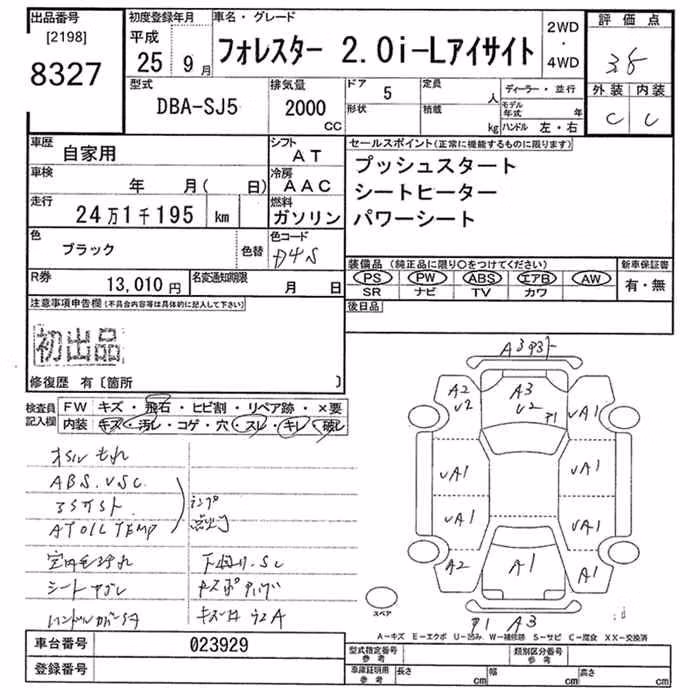 出品番号
[2198]
8327
初度登録年月
平成
25 9月
車名・グレード
フォレスター 2.0i-Lアイサイト
2WD
・
4WD
評価点
外装 内装
C C
型式
DBA-SJ5
排気量
2000
CC
ドア
5
形状
定員
人
積載
kg
ディーラー・並行
モデル年式 年
ハンドル 左・右
車歴
自家用
シフト
AT
車検
年 月( 日)
冷房
AAC
走行
24万1千195 km
燃料
ガソリン
色
ブラック
色替
色コード
D4S
R券
13,010円
名変通知期限
月 日
セールスポイント(正常に機能するものに限ります)
プッシュスタート
シートヒーター
パワーシート
装備品 (純正品に限り○をつけてください)
PS PW ABS エアB AW
SR ナビ TV カワ
新車保証書
有・無
後日品
注意事項申告欄(不具合内容等は具体的に記入して下さい)
初出品
修復歴 有〔箇所 〕
検査員記入欄
FW キズ・飛石・ヒビ割・リペア跡・×要
内装 キズ・汚レ・コゲ・穴・スレ・キレ・破レ
オイルもれ
ABS.VSC.
AT OIL TEMP
A3
A2
U2
A3
U2
P1
UA1
UA1
UA1
UA1
UA1
A2
A1
A1
P1 A3
スペア
A-キズ E-エクボ U-凹み W-補修跡 S-サビ C-腐食 XX-交換済
車台番号
023929
登録番号
型式指定番号
参考
類別区分番号
参考
車庫証明用
参考
長さ cm
幅 cm
高さ cm